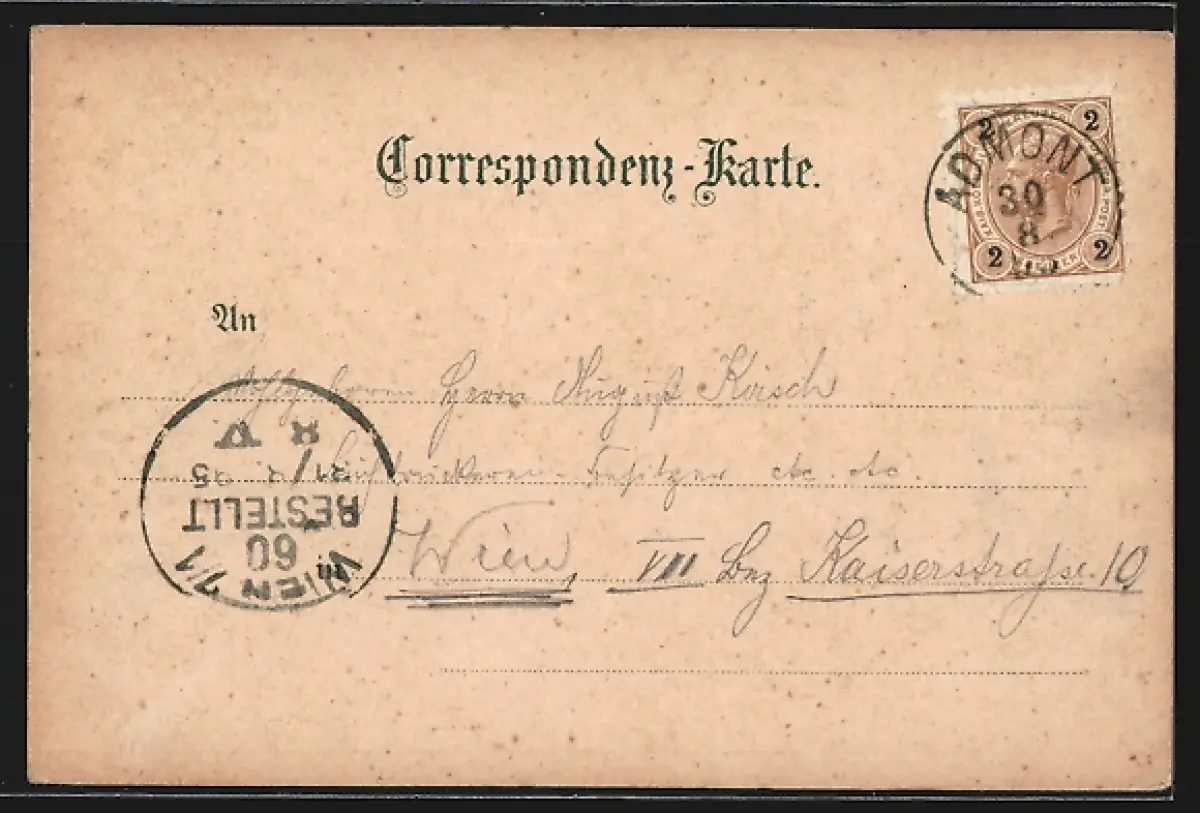 Correspondenz-Karte.
2 2
ADMONT
30
8
2 2
An
Herrn August Kirsch
Besitzer etc. etc.
in Wien, VIII Bez Kaiserstraße 10
WIEN 7/1
60
BESTELLT
8 V